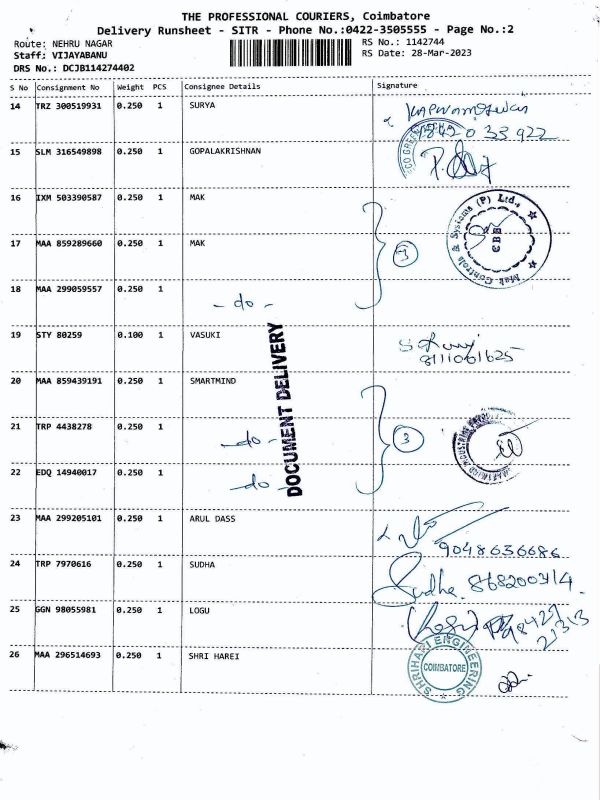 THE PROFESSIONAL COURIERS, Coimbatore
Delivery Runsheet - SITR - Phone No.:0422-3505555 - Page No.:2
Route: NEHRU NAGAR
RS No.: 1142744
Staff: VIJAYABANU
RS Date: 28-Mar-2023
DRS No.: DCJB114274402
S No Consignment No Weight PCS Consignee Details Signature
14 TRZ 300519931 0.250 1 SURYA
33 922
15 SLM 316549898 0.250 1 GOPALAKRISHNAN
16 IXM 503390587 0.250 1 MAK
Mak Controls & Systems (P) Ltd., CBE
17 MAA 859289660 0.250 1 MAK 3
18 MAA 299059557 0.250 1 - do -
19 STY 80259 0.100 1 VASUKI
8111061625
DOCUMENT DELIVERY
20 MAA 859439191 0.250 1 SMARTMIND
21 TRP 4438278 0.250 1 - do - 3
22 EDQ 14940017 0.250 1 - do -
23 MAA 299205101 0.250 1 ARUL DASS
9048636686
24 TRP 7970616 0.250 1 SUDHA
Sudha 868200314
25 GGN 98055981 0.250 1 LOGU
21313
26 MAA 296514693 0.250 1 SHRI HAREI
SHRIHARI ENGINEERING COIMBATORE